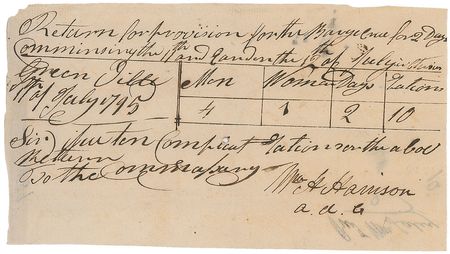 Return for provision for the Barge Crue for 2 Days
Comminsing the 11th and Ending the 12th of July inclusive
Green Ville
11th of July 1795
Men Women Days Rations
4 1 2 10
Sir) Issue ten Compleat Rations for the abov
Return
To the Commissary
Wm H Harrison
a. d. C